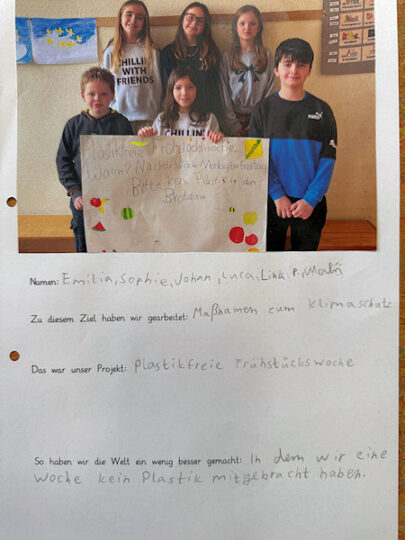 CHILLIN'
WITH
FRIENDS
CHILLIN'
PUMA
Plastikfreie Frühstückswoche.
Wann? Nächste Woche Montag bis Freitag
Bitte kein Plastik in den
Brotdosen
Namen: Emilia, Sophie, Johan, Luca, Lina P.,
Zu diesem Ziel haben wir gearbeitet: Maßnamen zum Klimaschutz
Das war unser Projekt: Plastikfreie Frühstückswoche
So haben wir die Welt ein wenig besser gemacht: In dem wir eine
Woche kein Plastik mitgebracht haben.